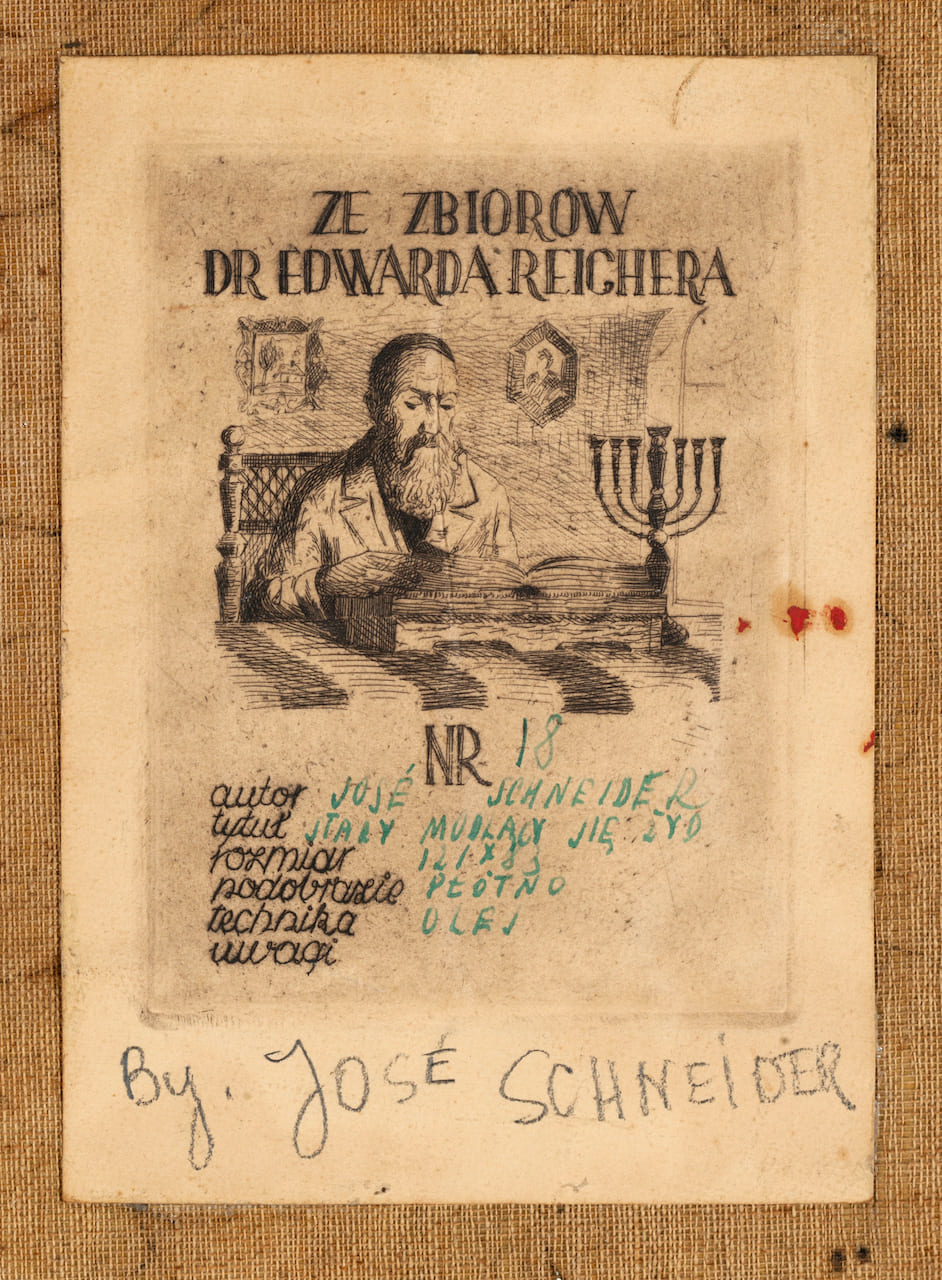 ZE ZBIORÓW
DR EDWARDA REICHERA
NR. 18
autor JOSÉ SCHNEIDER
tytuł STARY MODLĄCY SIĘ ŻYD
rozmiar 121X83
podobrazie PŁÓTNO
technika OLEJ
uwagi
By. JOSÉ SCHNEIDER